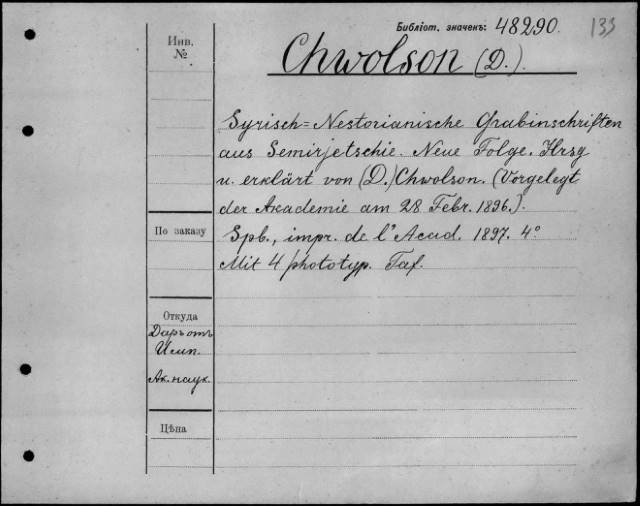 Библіот. значекъ: 48290. 133
Инв.
№
Chwolson (D.).
Syrisch=Nestorianische Grabinschriften
aus Semirjetschie. Neue Folge. Hrsg
u. erklärt von (D.) Chwolson. (Vorgelegt
der Akademie am 28 Febr. 1896.).
По заказу
Spb., impr. de l'Acad. 1897. 4°
Mit 4 phototyp. Taf.
Откуда
Даръ отъ
Имп.
Ак. наук.
Цѣна